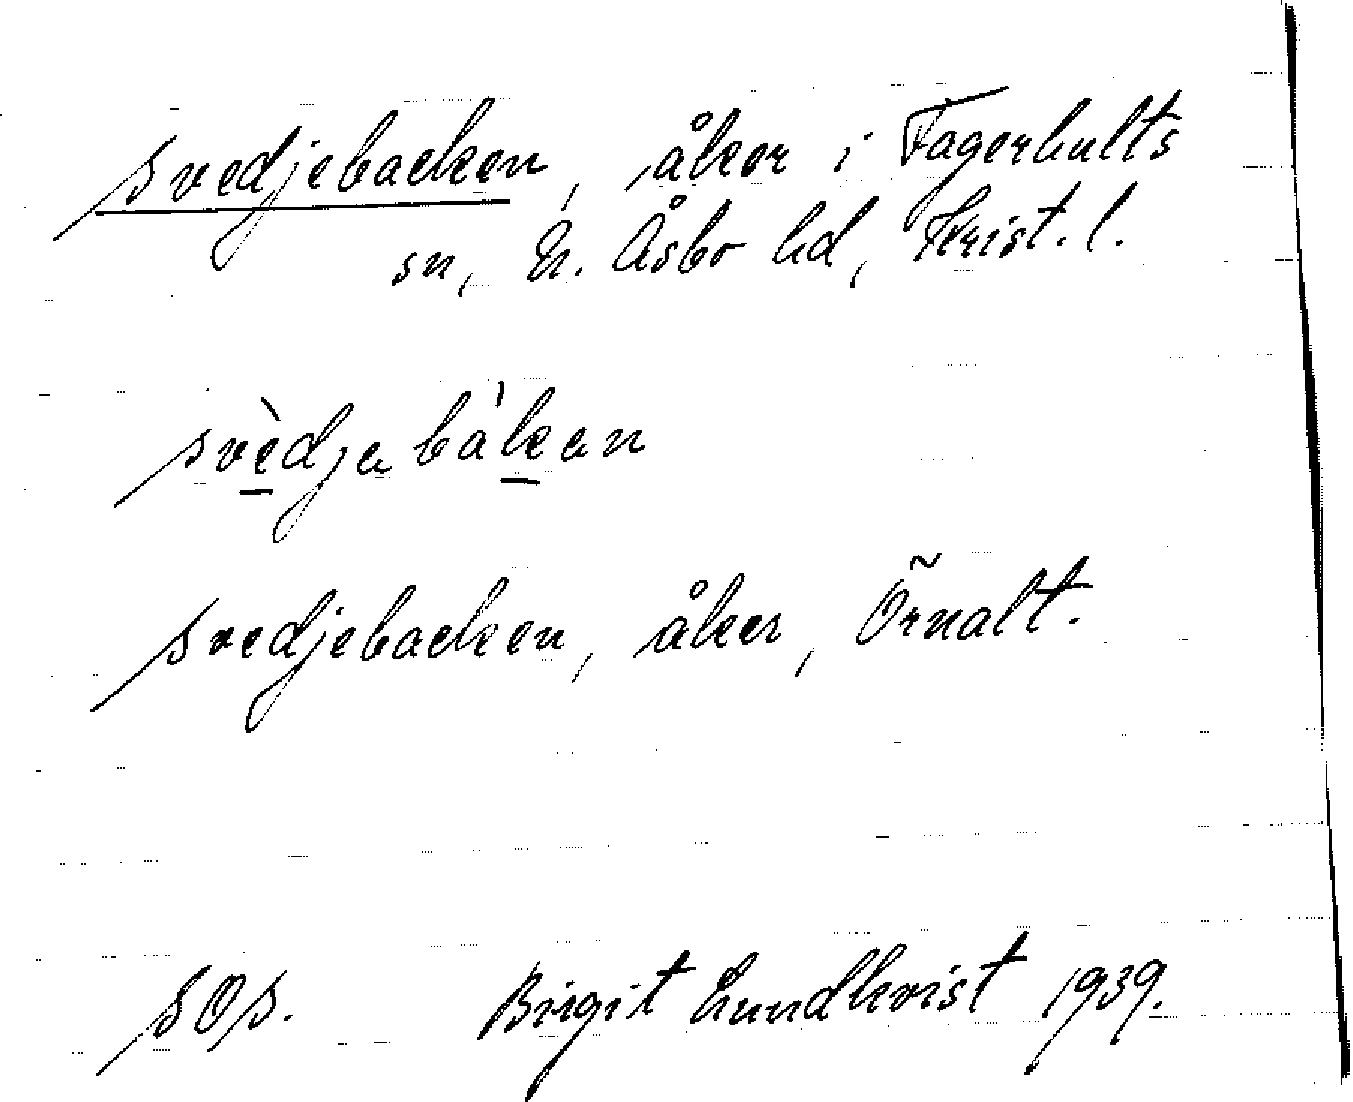 svedjebacken, åker i Fagerhults
sn, N. Åsbo hd, Krist. l.
svèdjabàkan
svedjebacken, åker, Õrnalt.
SOS. Birgit Lundkvist 1939.